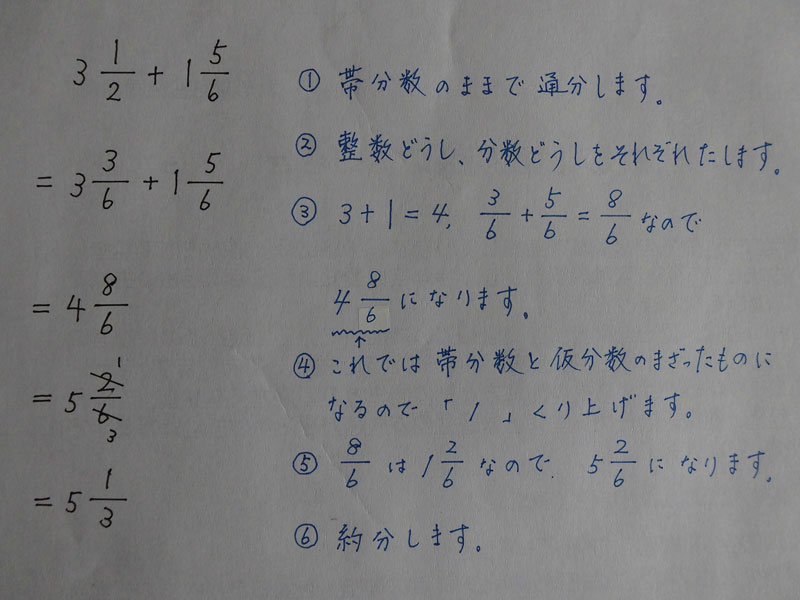 3 1/2 + 1 5/6
= 3 3/6 + 1 5/6
= 4 8/6
= 5 2/6 1 3
= 5 1/3
① 帯分数のままで通分します。
② 整数どうし、分数どうしをそれぞれたします。
③ 3+1=4, 3/6+5/6=8/6 なので
4 8/6 になります。
↑
④ これでは帯分数と仮分数のまざったものに
なるので「1」くり上げます。
⑤ 8/6 は 1 2/6 なので、5 2/6 になります。
⑥ 約分します。